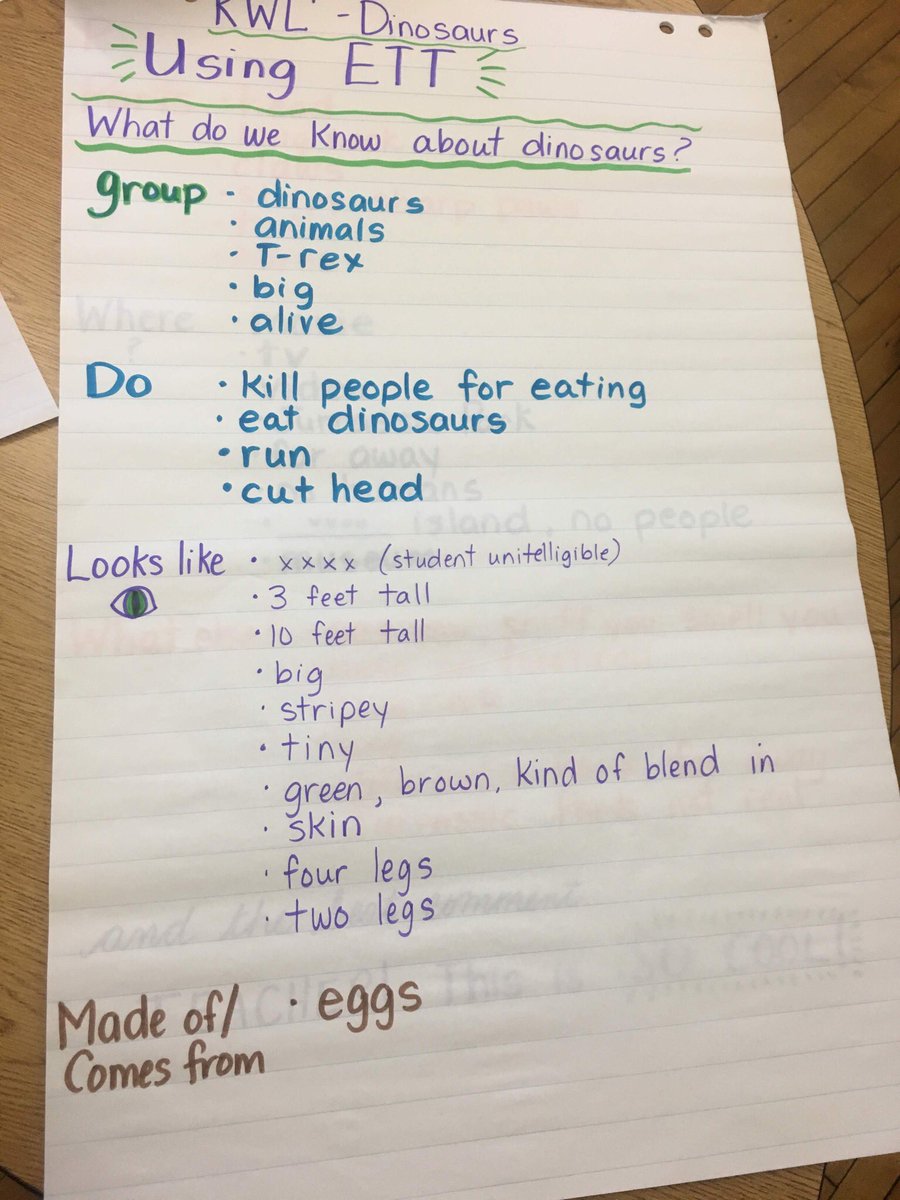 KWL - Dinosaurs
Using ETT
What do we know about dinosaurs?
group · dinosaurs
· animals
· T-rex
· big
· alive
Do · kill people for eating
· eat dinosaurs
· run
· cut head
Looks like · xxxx (student unitelligible)
· 3 feet tall
· 10 feet tall
· big
· stripey
· tiny
· green, brown, kind of blend in
· skin
· four legs
· two legs
Made of/ · eggs
Comes from